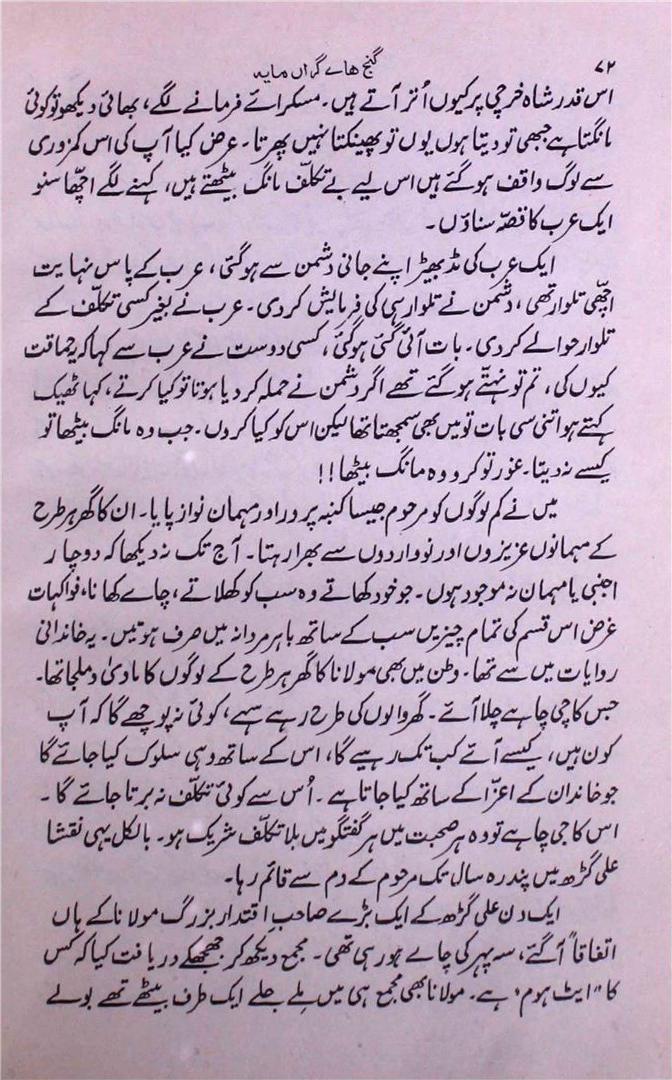 ۷۲
گنج هاے گراں مایہ
اس قدر شاہ خرچی پر کیوں اُتر آتے ہیں۔ مسکرائے فرمانے لگے، بھائی دیکھو تو کوئی
مانگتا ہے جبھی تو دیتا ہوں یوں تو پھینکتا نہیں پھرتا۔ عرض کیا آپ کی اس کمزوری
سے لوگ واقف ہو گئے ہیں اس لیے بے تکلّف مانگ بیٹھتے ہیں، کہنے لگے اچھّا سنو
ایک عرب کا قصّہ سناؤں۔
ایک عرب کی مڈبھیڑ اپنے جانی دشمن سے ہو گئی، عرب کے پاس نہایت
اچھّی تلوار تھی، دشمن نے تلوار ہی کی فرمایش کر دی۔ عرب نے بغیر کسی تکلّف کے
تلوار حوالے کر دی۔ بات آئی گئی ہو گئی، کسی دوست نے عرب سے کہا کہ حماقت
کیوں کی، تم تو نہتّے ہو گئے تھے اگر دشمن نے حملہ کر دیا ہوتا تو کیا کرتے، کہا ٹھیک
کہتے ہو اتنی سی بات تو میں بھی سمجھتا تھا لیکن اس کو کیا کروں۔ جب وہ مانگ بیٹھا تو
کیسے نہ دیتا۔ غور تو کرو وہ مانگ بیٹھا!!
میں نے کم لوگوں کو مرحوم جیسا کنبہ پرور اور مہمان نواز پایا۔ ان کا گھر ہر طرح
کے مہمانوں عزیزوں اور نوواردوں سے بھرا رہتا۔ آج تک نہ دیکھا کہ دو چار
اجنبی یا مہمان نہ موجود ہوں۔ جو خود کھاتے وہ سب کو کھلاتے، چاے کھانا، فواکہات
غرض اس قسم کی تمام چیزیں سب کے ساتھ باہر مردانہ میں صرف ہوتیں۔ یہ خاندانی
روایات میں سے تھا۔ وطن میں بھی مولانا کا گھر ہر طرح کے لوگوں کا مادیٰ و ملجا تھا۔
جس کا جی چاہے چلا آئے۔ گھر والوں کی طرح رہے سہے، کوئی نہ پوچھے گا کہ آپ
کون ہیں، کیسے آئے کب تک رہیے گا، اس کے ساتھ وہی سلوک کیا جائے گا
جو خاندان کے اعزّا کے ساتھ کیا جاتا ہے۔ اُس سے کوئی تکلّف نہ برتا جائے گا۔
اس کا جی چاہے تو وہ ہر صحبت میں ہر گفتگو میں بلا تکلّف شریک ہو۔ بالکل یہی نقشا
علی گڑھ میں پندرہ سال تک مرحوم کے دم سے قائم رہا۔
ایک دن علی گڑھ کے ایک بڑے صاحبِ اقتدار بزرگ مولانا کے ہاں
اتفاقاً آ گئے، سہ پہر کی چاے ہو رہی تھی۔ مجمع دیکھ کر جھجھکے دریافت کیا کہ کس
کا "ایٹ ہوم" ہے۔ مولانا بھی مجمع ہی میں ملے جلے ایک طرف بیٹھے تھے بولے